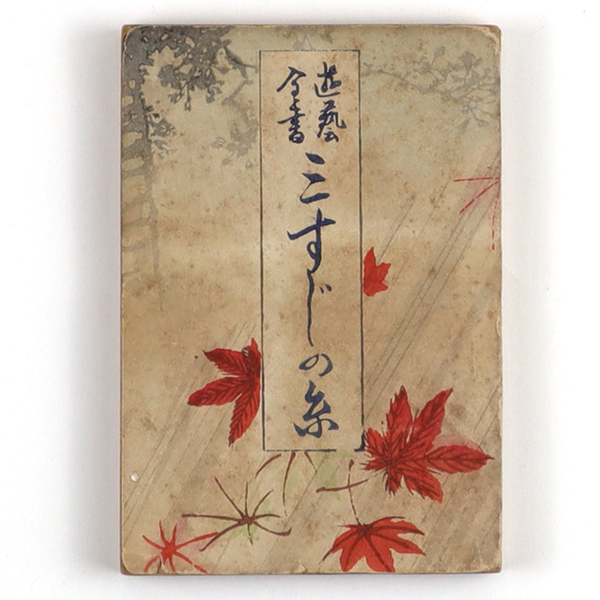 遊藝
全書
三すじの糸